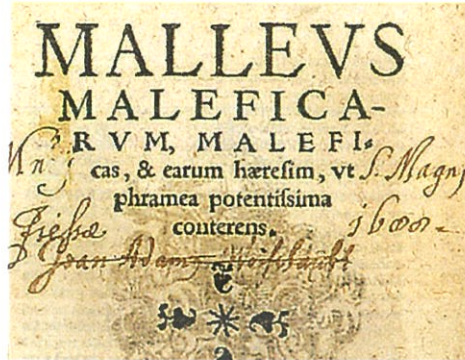 MALLEVS
MALEFICA-
RVM, MALEFI-
cas, & earum hæreſim, vt S. Magn
phramea potentiſſima
conterens. 1600
Joan Adam